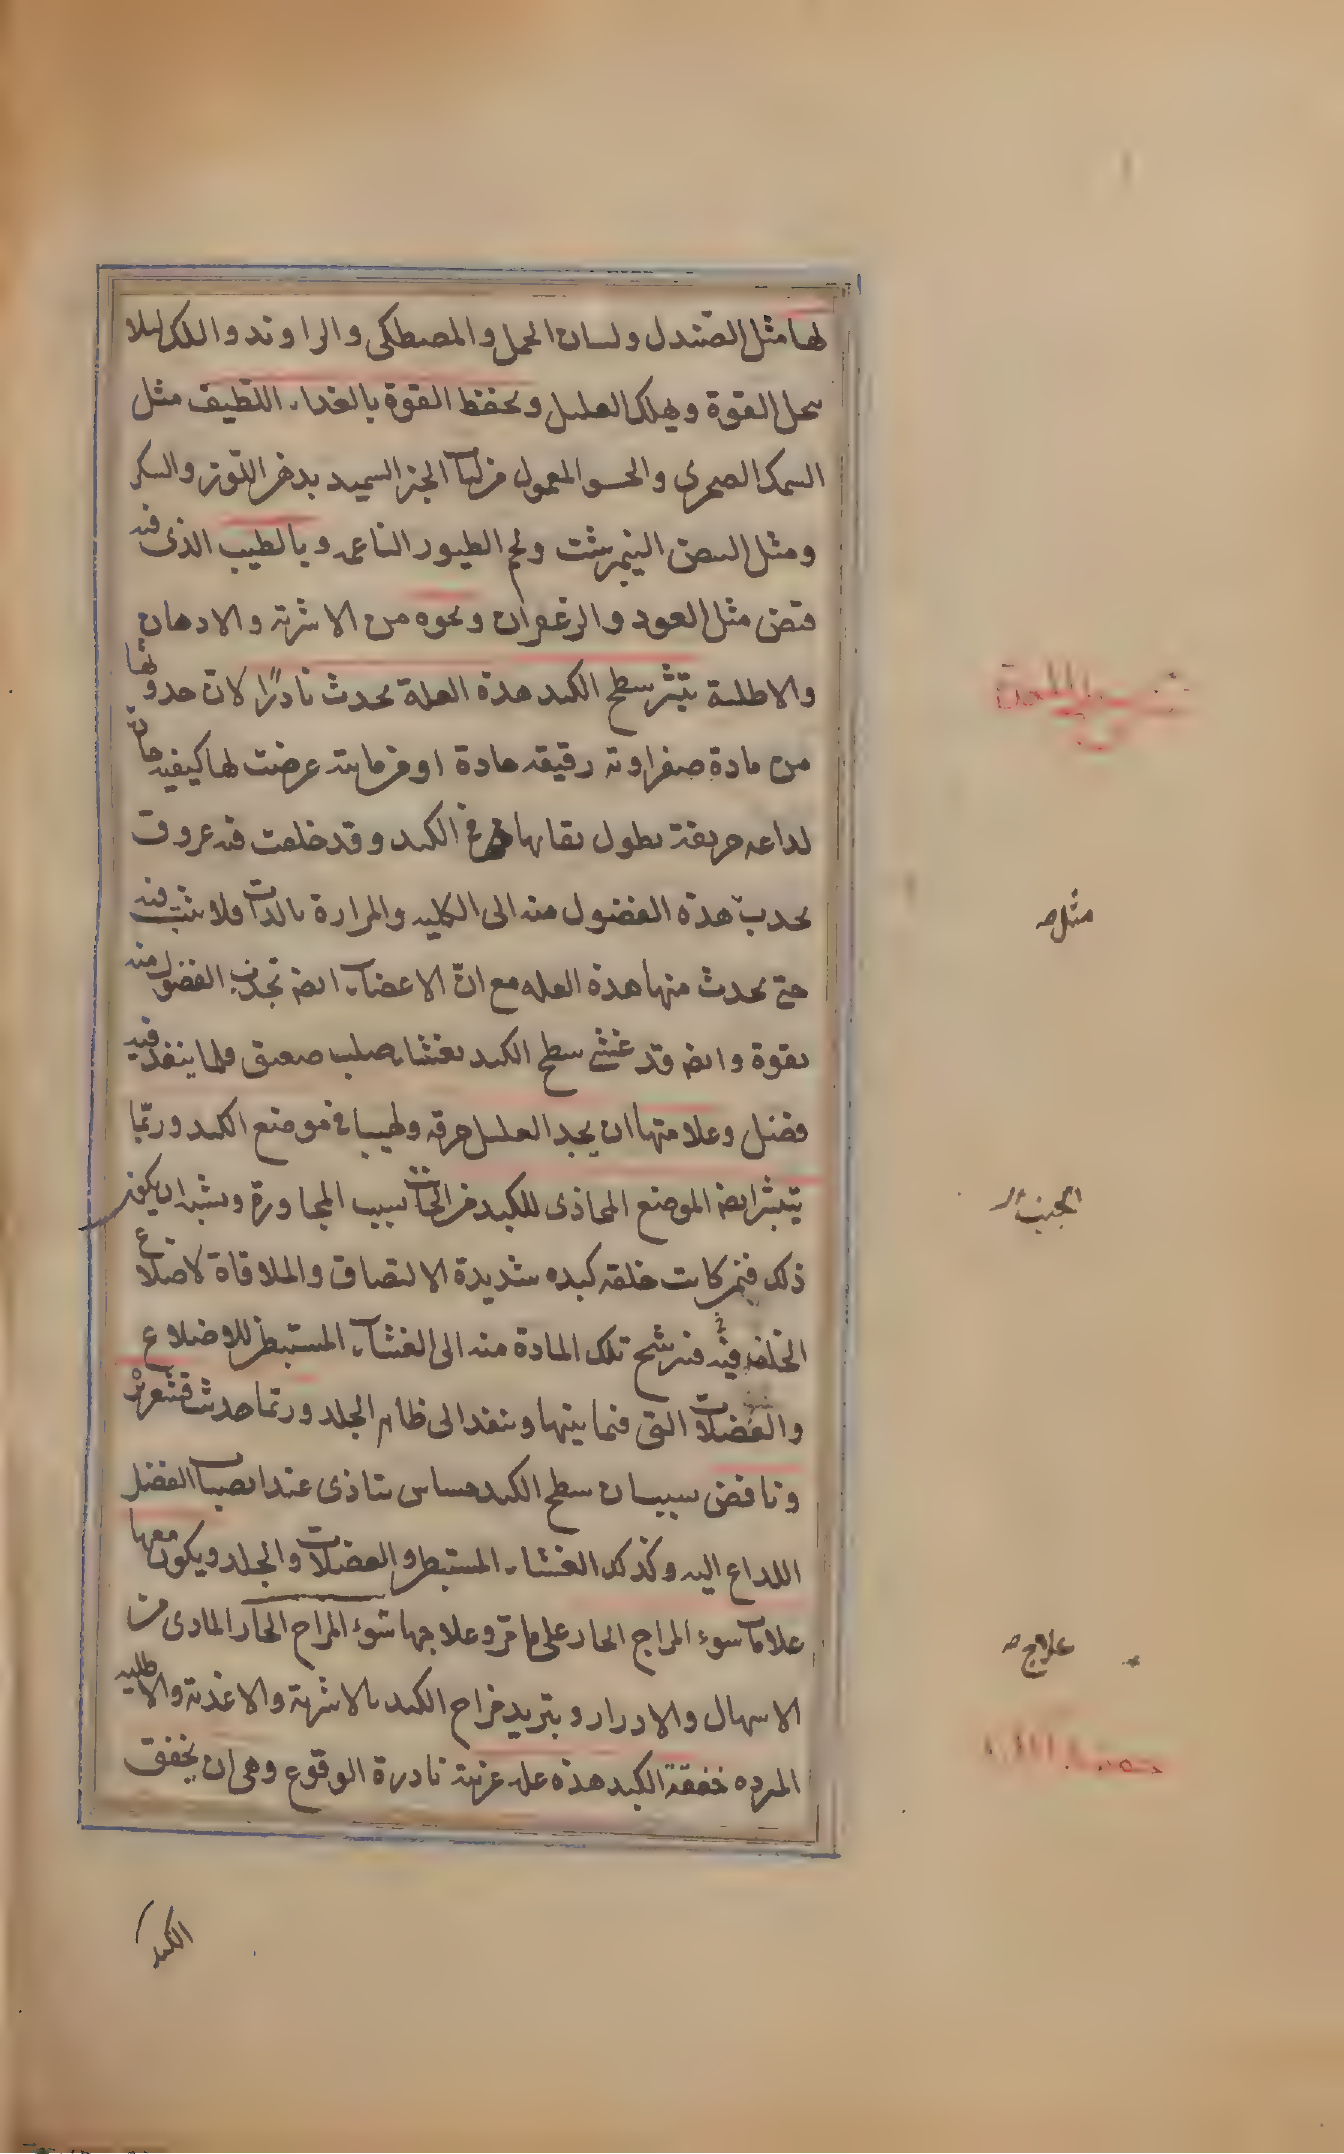 لها مثل الصندل ولسان الحمل والمصطكى والراوند واللك لئلا
يحل القوة ويهلك العليل ويحفظ القوة بالغداء اللطيف مثل
السمك الصخرى والحسو المعمول من لباب الخبز السميد بدهن اللوز والسكر
ومثل البيض النيمرشت ولحم الطيور الناعمه وبالطيب الذى فيه
قبض مثل العود والزعفران ونحوه من الاشربة والادهان
والاطلية تبثر سطح الكبد هذه العلة يحدث نادرًا لان حدوثها
من مادة صفراوية رقيقه حادة او من مائيته عرضت لها كيفيه حادة
لداعه حريفة يطول بقاءها فى الكبد وقد خلقت فيه عروق
يجدب هذه الفضول منه الى الكليه والمرارة بالدات ولا يثبت فيه
حتى يحدث منها هذه العله مع انّ الاعضاء ايضا تجذب الفضول منه
بقوة وايضا قد غشى سطح الكبد بغشاء صلب صفيق قلما ينفذ فيه
فضل وعلامتها ان يجد العليل حرقه ولهيبا فى موضع الكبد وربّما
يتبثر ايضا الموضع المحاذى للكبد من الجانب بسبب المجاورة ويشبه ان يكون
ذلك فيمن كانت خلقه كبده شديدة الالتصاق والملاقاة لاضلاع
الخلف فيه فيرشح تلك المادة منه الى الغشاء المستبطن للاضلاع
والعضلات التى فيما بينها وينفد الى ظاهر الجلد وربّما حدث قشعريرة
ونافض بسبب ان سطح الكبد حساس يتاذى عند انصباب الفضل
اللداع اليه وكذلك الغشاء المستبطن والعضلات والجلد ويكون معها
علامات سوء المزاج الحار على ما مرّ وعلاجها سوء المزاج الحار المادى من
الاسهال والادرار وتبريد مزاج الكبد بالاشربة والاغذية والاطليه
المبرده خفقة الكبد هذه عله غريبة نادرة الوقوع وهى ان يخفق
مثل صه
الجنب
علاج صه
الكبد